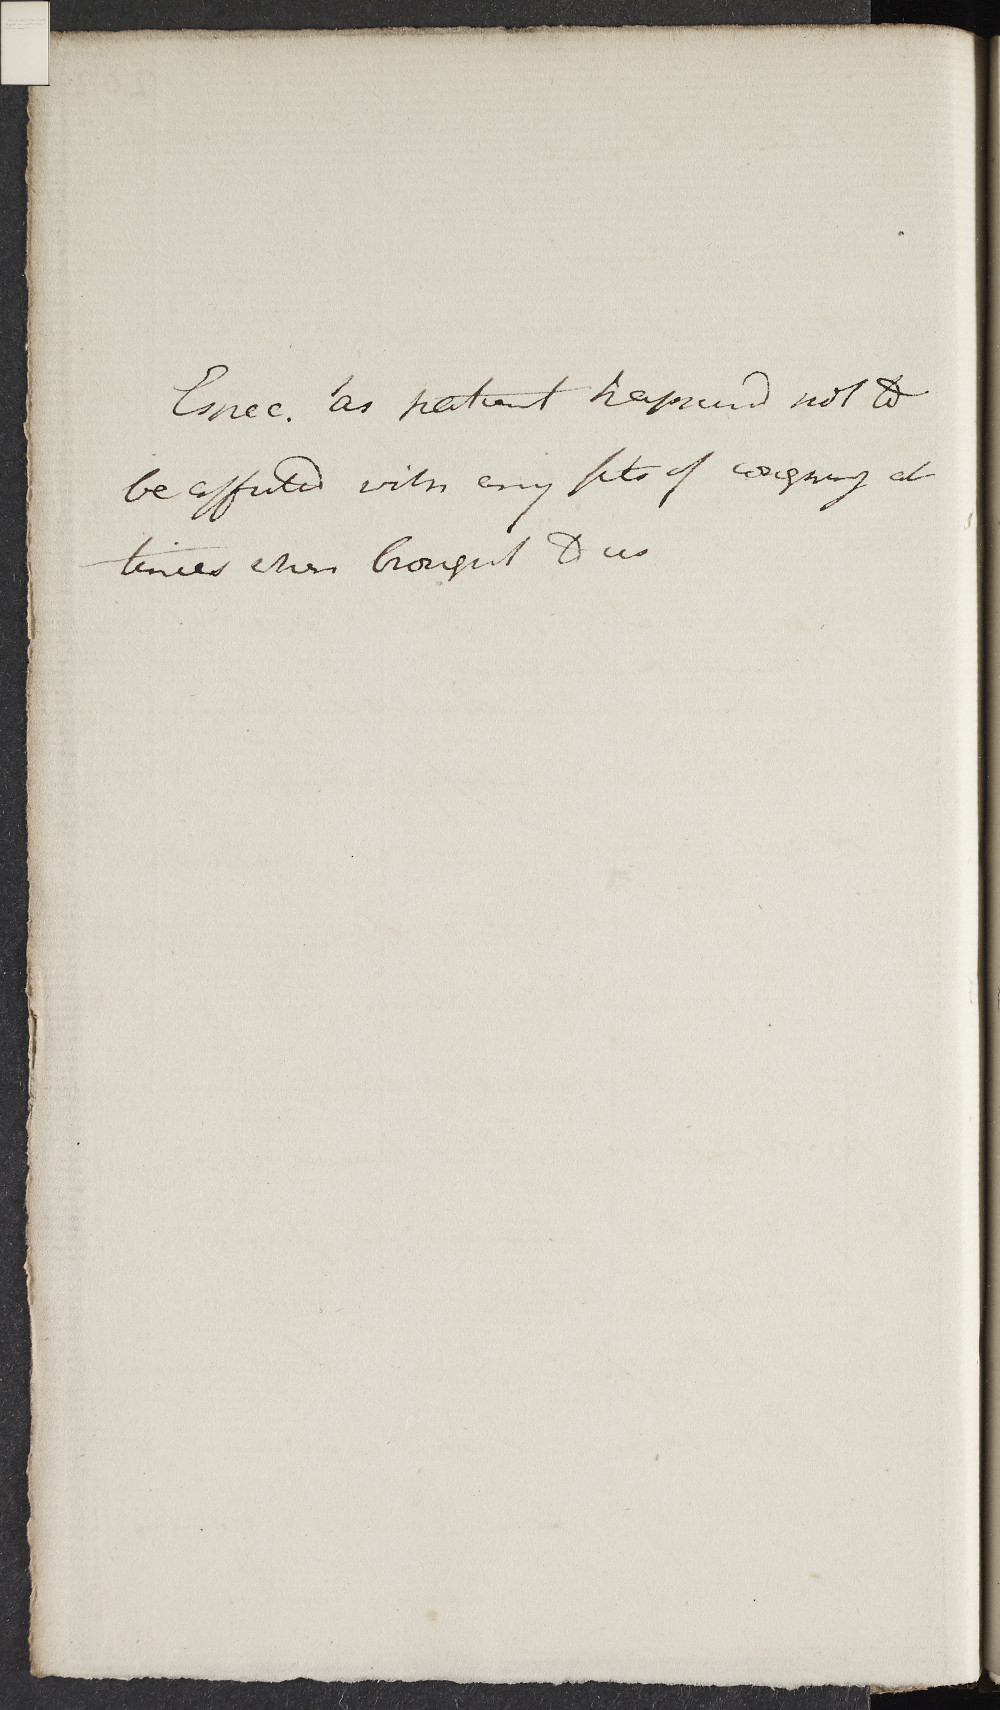 Espec. as patient happened not to
be affected with any fits of coughing at
times when brought to us